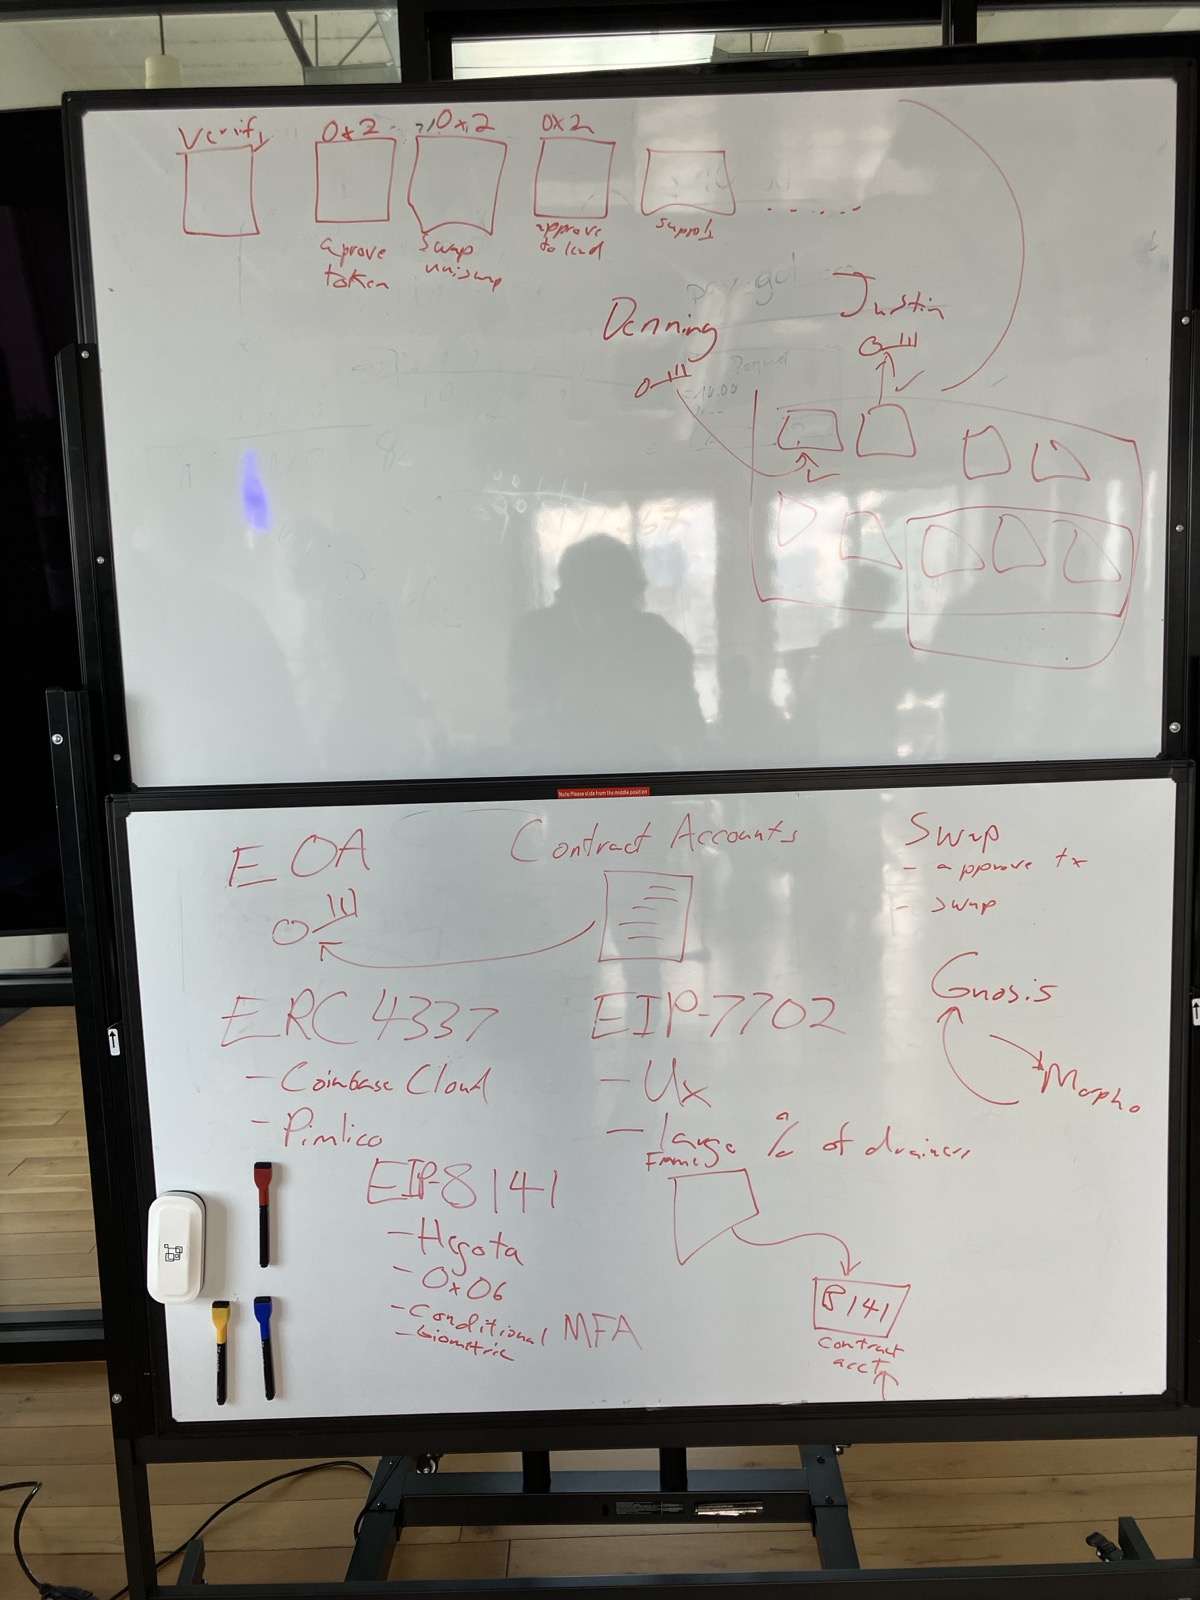 Verify
0x2
0x2
0x2
aprove
token
Swap
uniswap
approve
to lend
Denning
Justin
Note:Please slide from the middle position
EOA
Contract Accounts
Swap
- approve tx
- swap
Gnosis
Morpho
ERC 4337
- Coinbase Cloud
- Pimlico
EIP-7702
- Ux
- large % of drainers
EIP-8141
- Hegota
- 0x06
- Conditional MFA
- biometric
Frames
8141
contract
acct